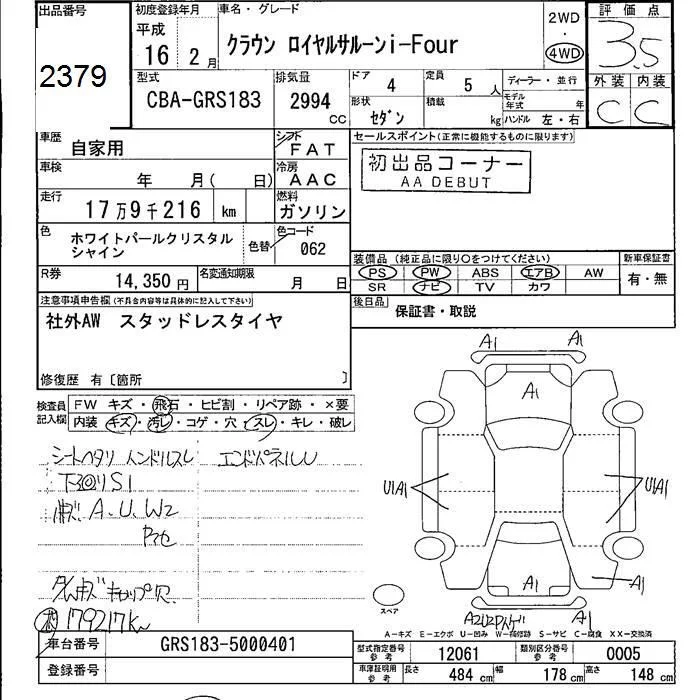 出品番号
2379
初度登録年月
平成
16 2月
車名・グレード
クラウン ロイヤルサルーンi-Four
2WD
・
4WD
評価点
3.5
型式
CBA-GRS183
排気量
2994
CC
ドア 4
定員 5 人
ディーラー・並行
形状 セダン
積載 kg
モデル年式 年
ハンドル 左・右
外装 内装
C C
車歴
自家用
シフト
FAT
セールスポイント(正常に機能するものに限ります)
初出品コーナー
AA DEBUT
車検
年 月( 日)
冷房
AAC
走行
17万9千216 km
燃料
ガソリン
色
ホワイトパールクリスタル
シャイン
色替
色コード
062
装備品 (純正品に限り○をつけてください)
新車保証書
PS PW ABS エアB AW
有・無
SR ナビ TV カワ
R券
14,350円
名変通知期限
月 日
後日品
保証書・取説
注意事項申告欄(不具合内容等は具体的に記入して下さい)
社外AW スタッドレスタイヤ
修復歴 有〔箇所 〕
検査員
記入欄
FW キズ・飛石・ヒビ割・リペア跡・×要
内装 キズ・汚レ・コゲ・穴・スレ・キレ・破レ
シートヘタリ ハンドルスレ
エンドパネルU
下回りS1
A.U.W2
キャップ欠
179217Km
A1
A1
A1
U1A1
U1A1
A1
A1
A1
スペア
A-キズ E-エクボ U-凹み W-補修跡 S-サビ C-腐食 XX-交換済
車台番号
GRS183-5000401
型式指定番号
参考
12061
類別区分番号
参考
0005
登録番号
車庫証明用
参考
長さ 484 cm
幅 178 cm
高さ 148 cm